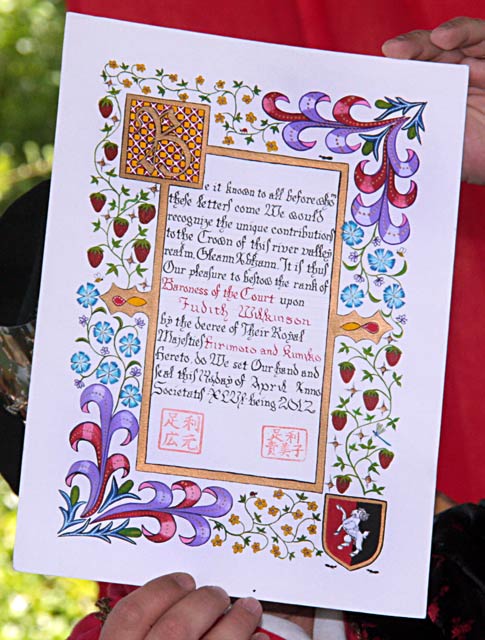 Be it known to all before whom
these letters come We would
recognize the unique contributions
to the Crown of this river valley
realm, Gleann Abhann. It is thus
Our pleasure to bestow the rank of
Baroness of the Court upon
Judith Wilkinson
by the decree of Their Royal
Majesties Hirimoto and Kumiko
Hereto, do We set Our hand and
seal this day of April Anno
Societatis XLVI being 2012
足利
広元
足利
貴美子